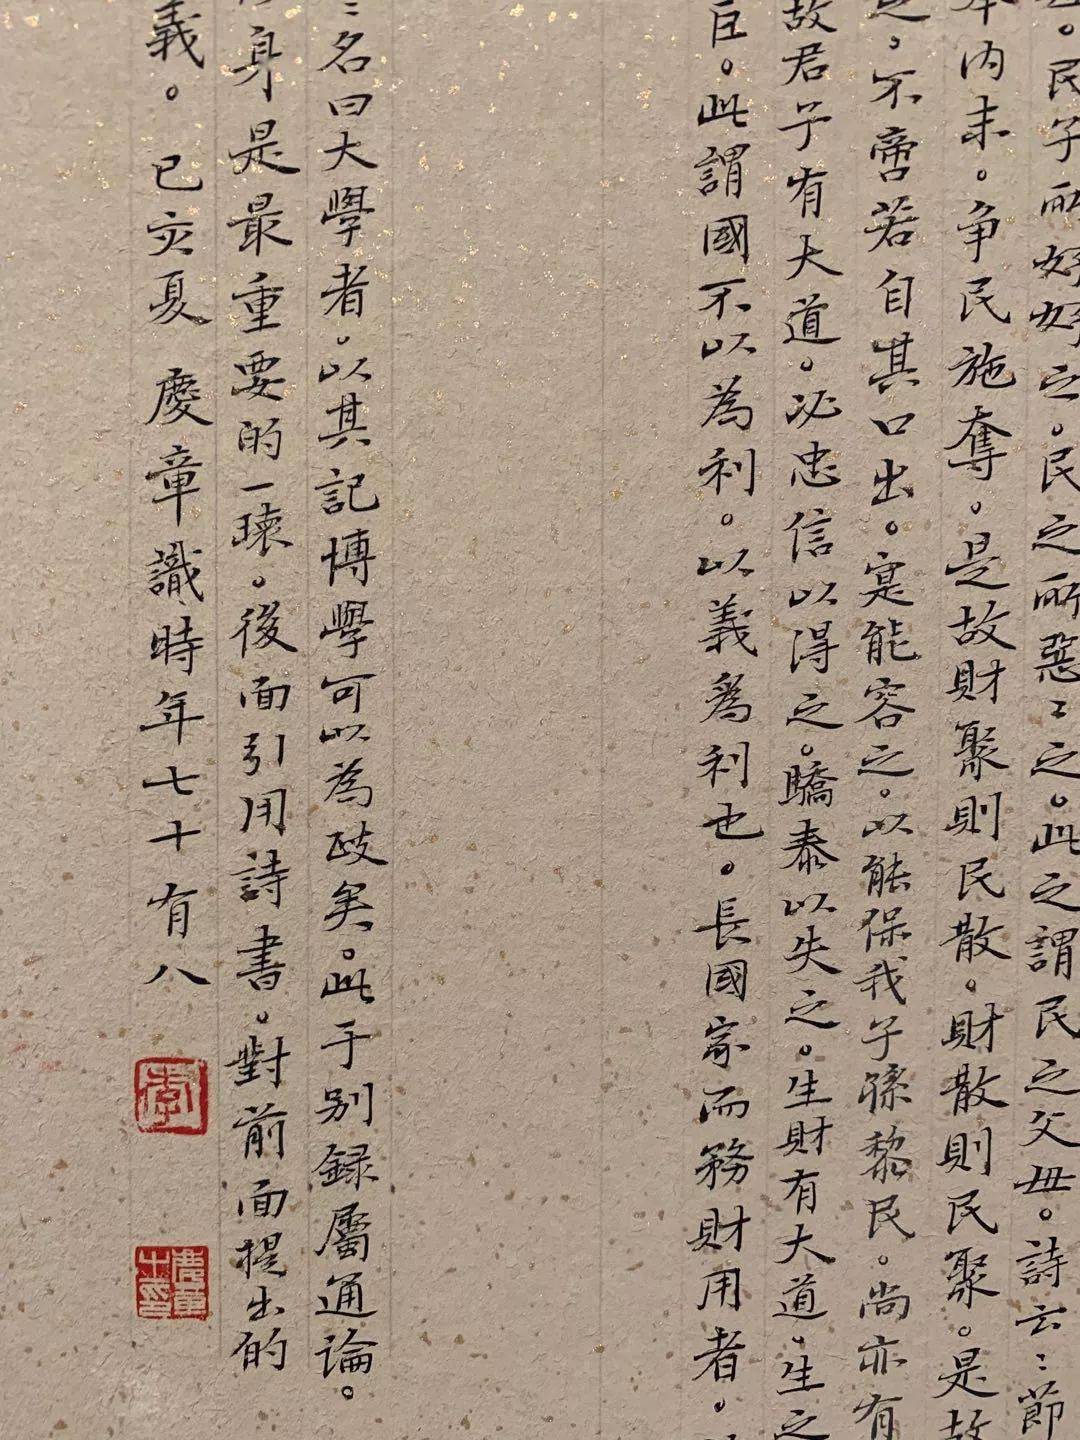 民子所好好之。民之所惡〻之。此之謂民之父毋。詩云〻節
本内末。争民施奪。是故財聚則民散。財散則民聚。是故
之。不啻若自其口出。寔能容之。以能保我子孫黎民。尚亦有
故君子有大道。必忠信以得之。驕泰以失之。生財有大道。生之
臣。此謂國不以為利。以義為利也。長國家而務財用者。
〻名曰大學者。以其記博學可以為政矣。此于别録屬通論。
身是最重要的一環。後面引用詩書。對前面提出的
義。已亥夏 慶章識時年七十有八
李
慶章
之印